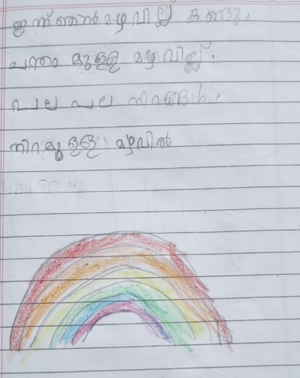 ഇന്ന് ഞാൻ മഴവില്ല് കണ്ടു.
ചന്തം മുള്ള മഴവില്ല്.
പല പല നിറങ്ങൾ.
നിറമുള്ള മഴവിൽ